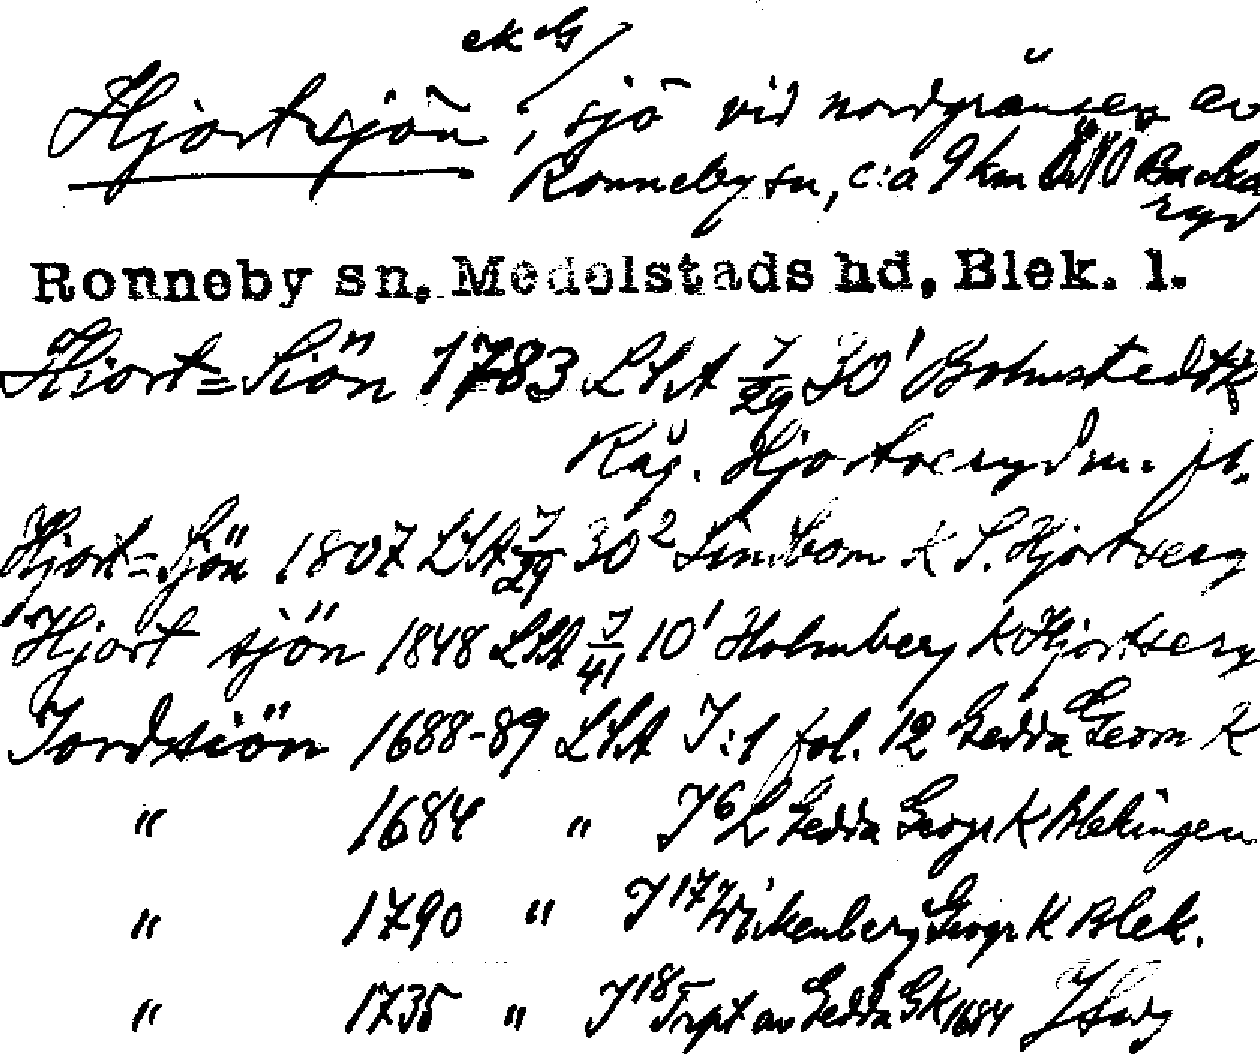 ek G
Hjortsjön, sjö vid nordgränsen av
Ronneby sn, c:a 9 km NO Backa
ryd
Ronneby sn. Medelstads hd, Blek. l.
Hiort=Siön 1783 LSA 7/29 30¹ Bohnstedt K
Råg. Hjort
Hjort=Sjön 1807 LSA 7/29 30² Lindbom K S. Hjortserg
Hjort sjön 1848 LSA 7/41 10¹ Holmberg K Hjortserg
Jordsiön 1688-89 LSA J:1 fol. 12 Gedda Geom K
" 1684 " J 6 Gedda Geogr K Blekingen
" 1790 " J 17 Wikenberg Geogr K Blek.
" 1735 " J 18 av Gedda GK 1684